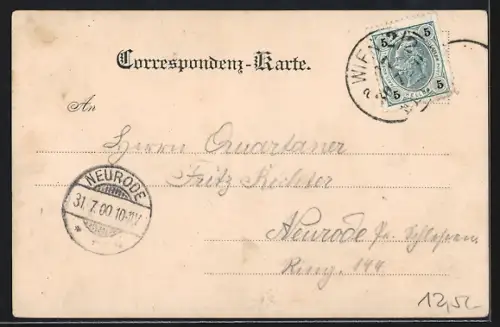 Correspondenz-Karte.
WIEN
5 5
5 5
An
Herrn Quartaner
Fritz Richter
NEURODE
31.7.00.10-11V
Neurode Pr. Schlesien
Ring 144
12,50